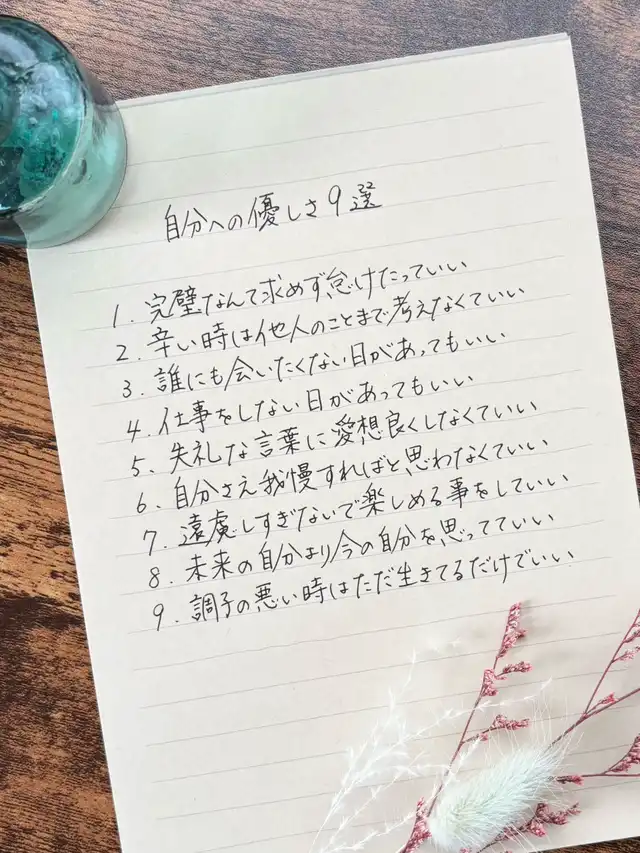 自分への優しさ9選
1. 完璧なんて求めず、怠けたっていい
2. 辛い時は他人のことまで考えなくていい
3. 誰にも会いたくない日があってもいい
4. 仕事をしない日があってもいい
5. 失礼な言葉に愛想良くしなくていい
6. 自分さえ我慢すればと思わなくていい
7. 遠慮しすぎないで楽しめる事をしていい
8. 未来の自分より今の自分を思ってていい
9. 調子の悪い時はただ生きてるだけでいい